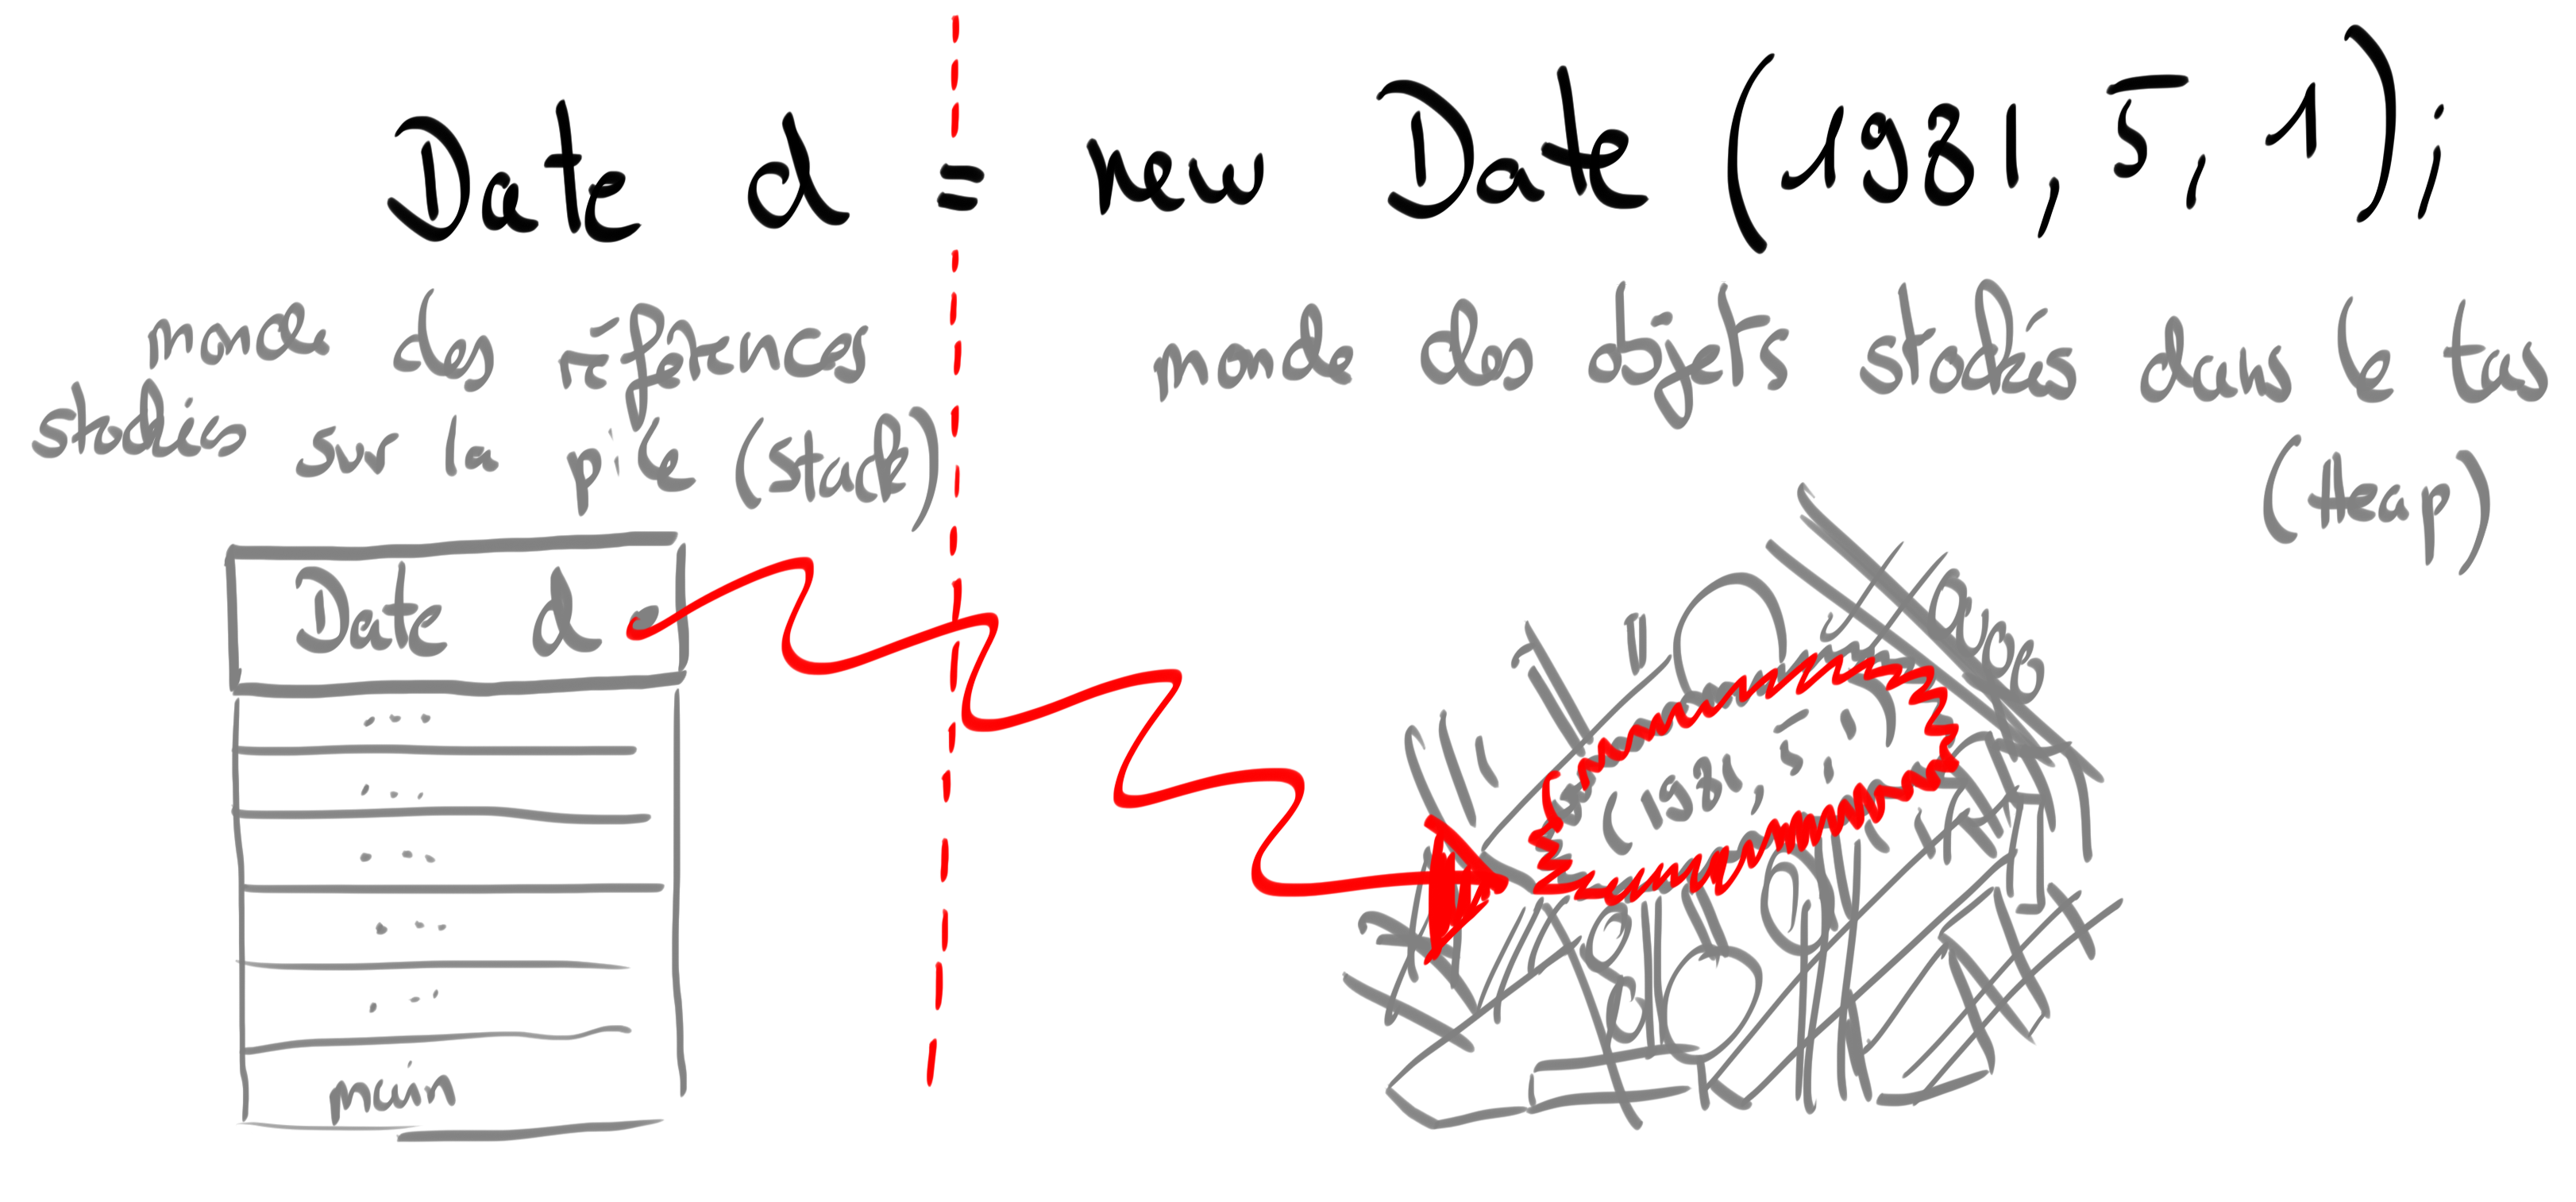 Date d = new Date (1981, 5, 1);
monde des références
stockées sur la pile (stack)
monde des objets stockés dans le tas
(Heap)
Date d
...
...
...
...
...
main
(1981, 5, 1)